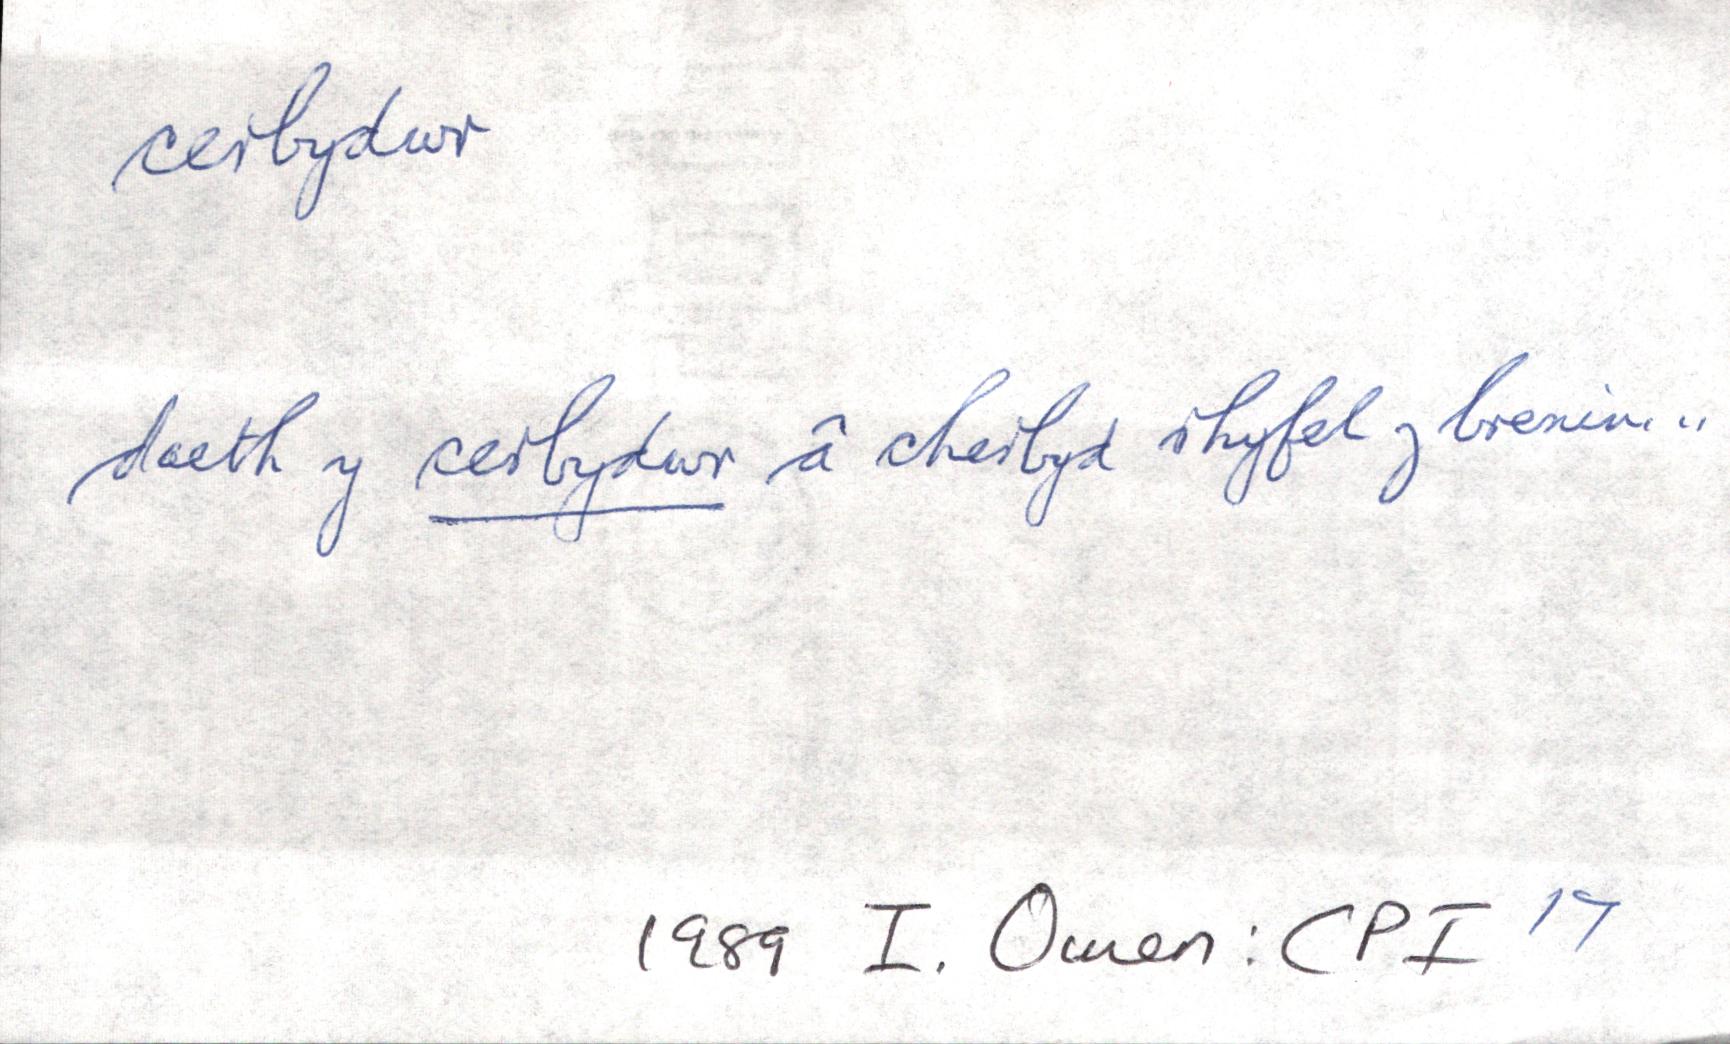 cerbydwr
daeth y cerbydwr â cherbyd rhyfel y brenin...
1989 I. Owen: CPI 17